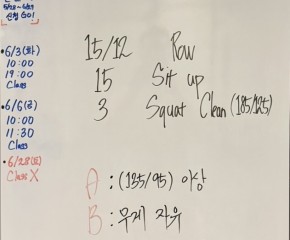 5/28~6/29
신청 GO!
•6/3(화)
10:00
19:00
Class
•6/6(금)
10:00
11:30
Class
•6/28(토)
Class X
15/12 Row
15 Sit up
3 Squat Clean (185/125)
A : (135/95) 이상
B : 무게 자유